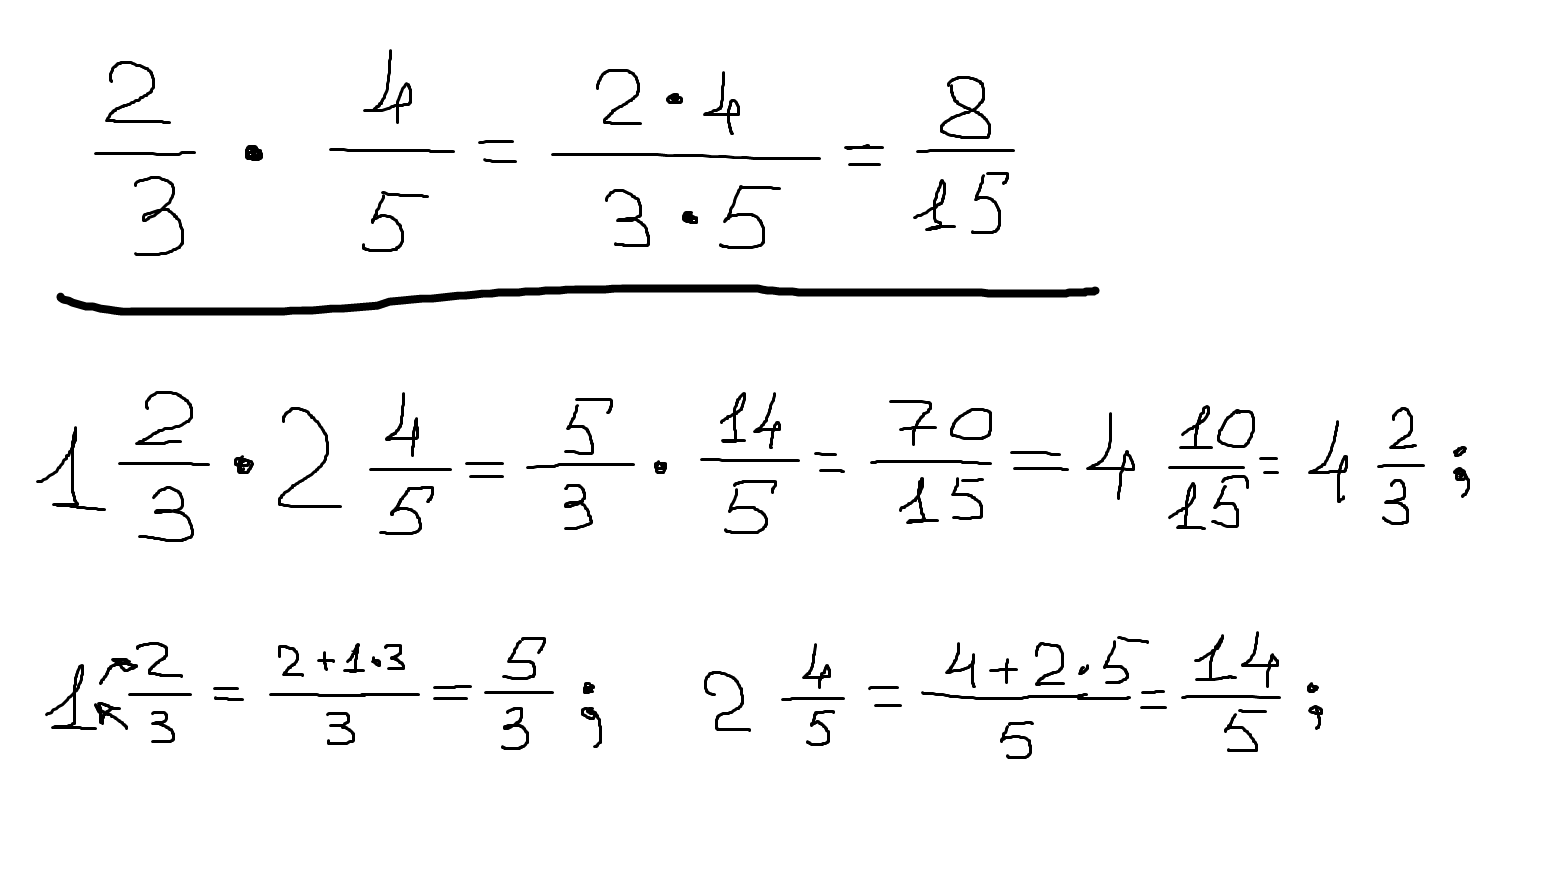 2/3 · 4/5 = 2·4/3·5 = 8/15
1 2/3 · 2 4/5 = 5/3 · 14/5 = 70/15 = 4 10/15 = 4 2/3 ;
1 2/3 = 2+1·3/3 = 5/3 ; 2 4/5 = 4+2·5/5 = 14/5 ;